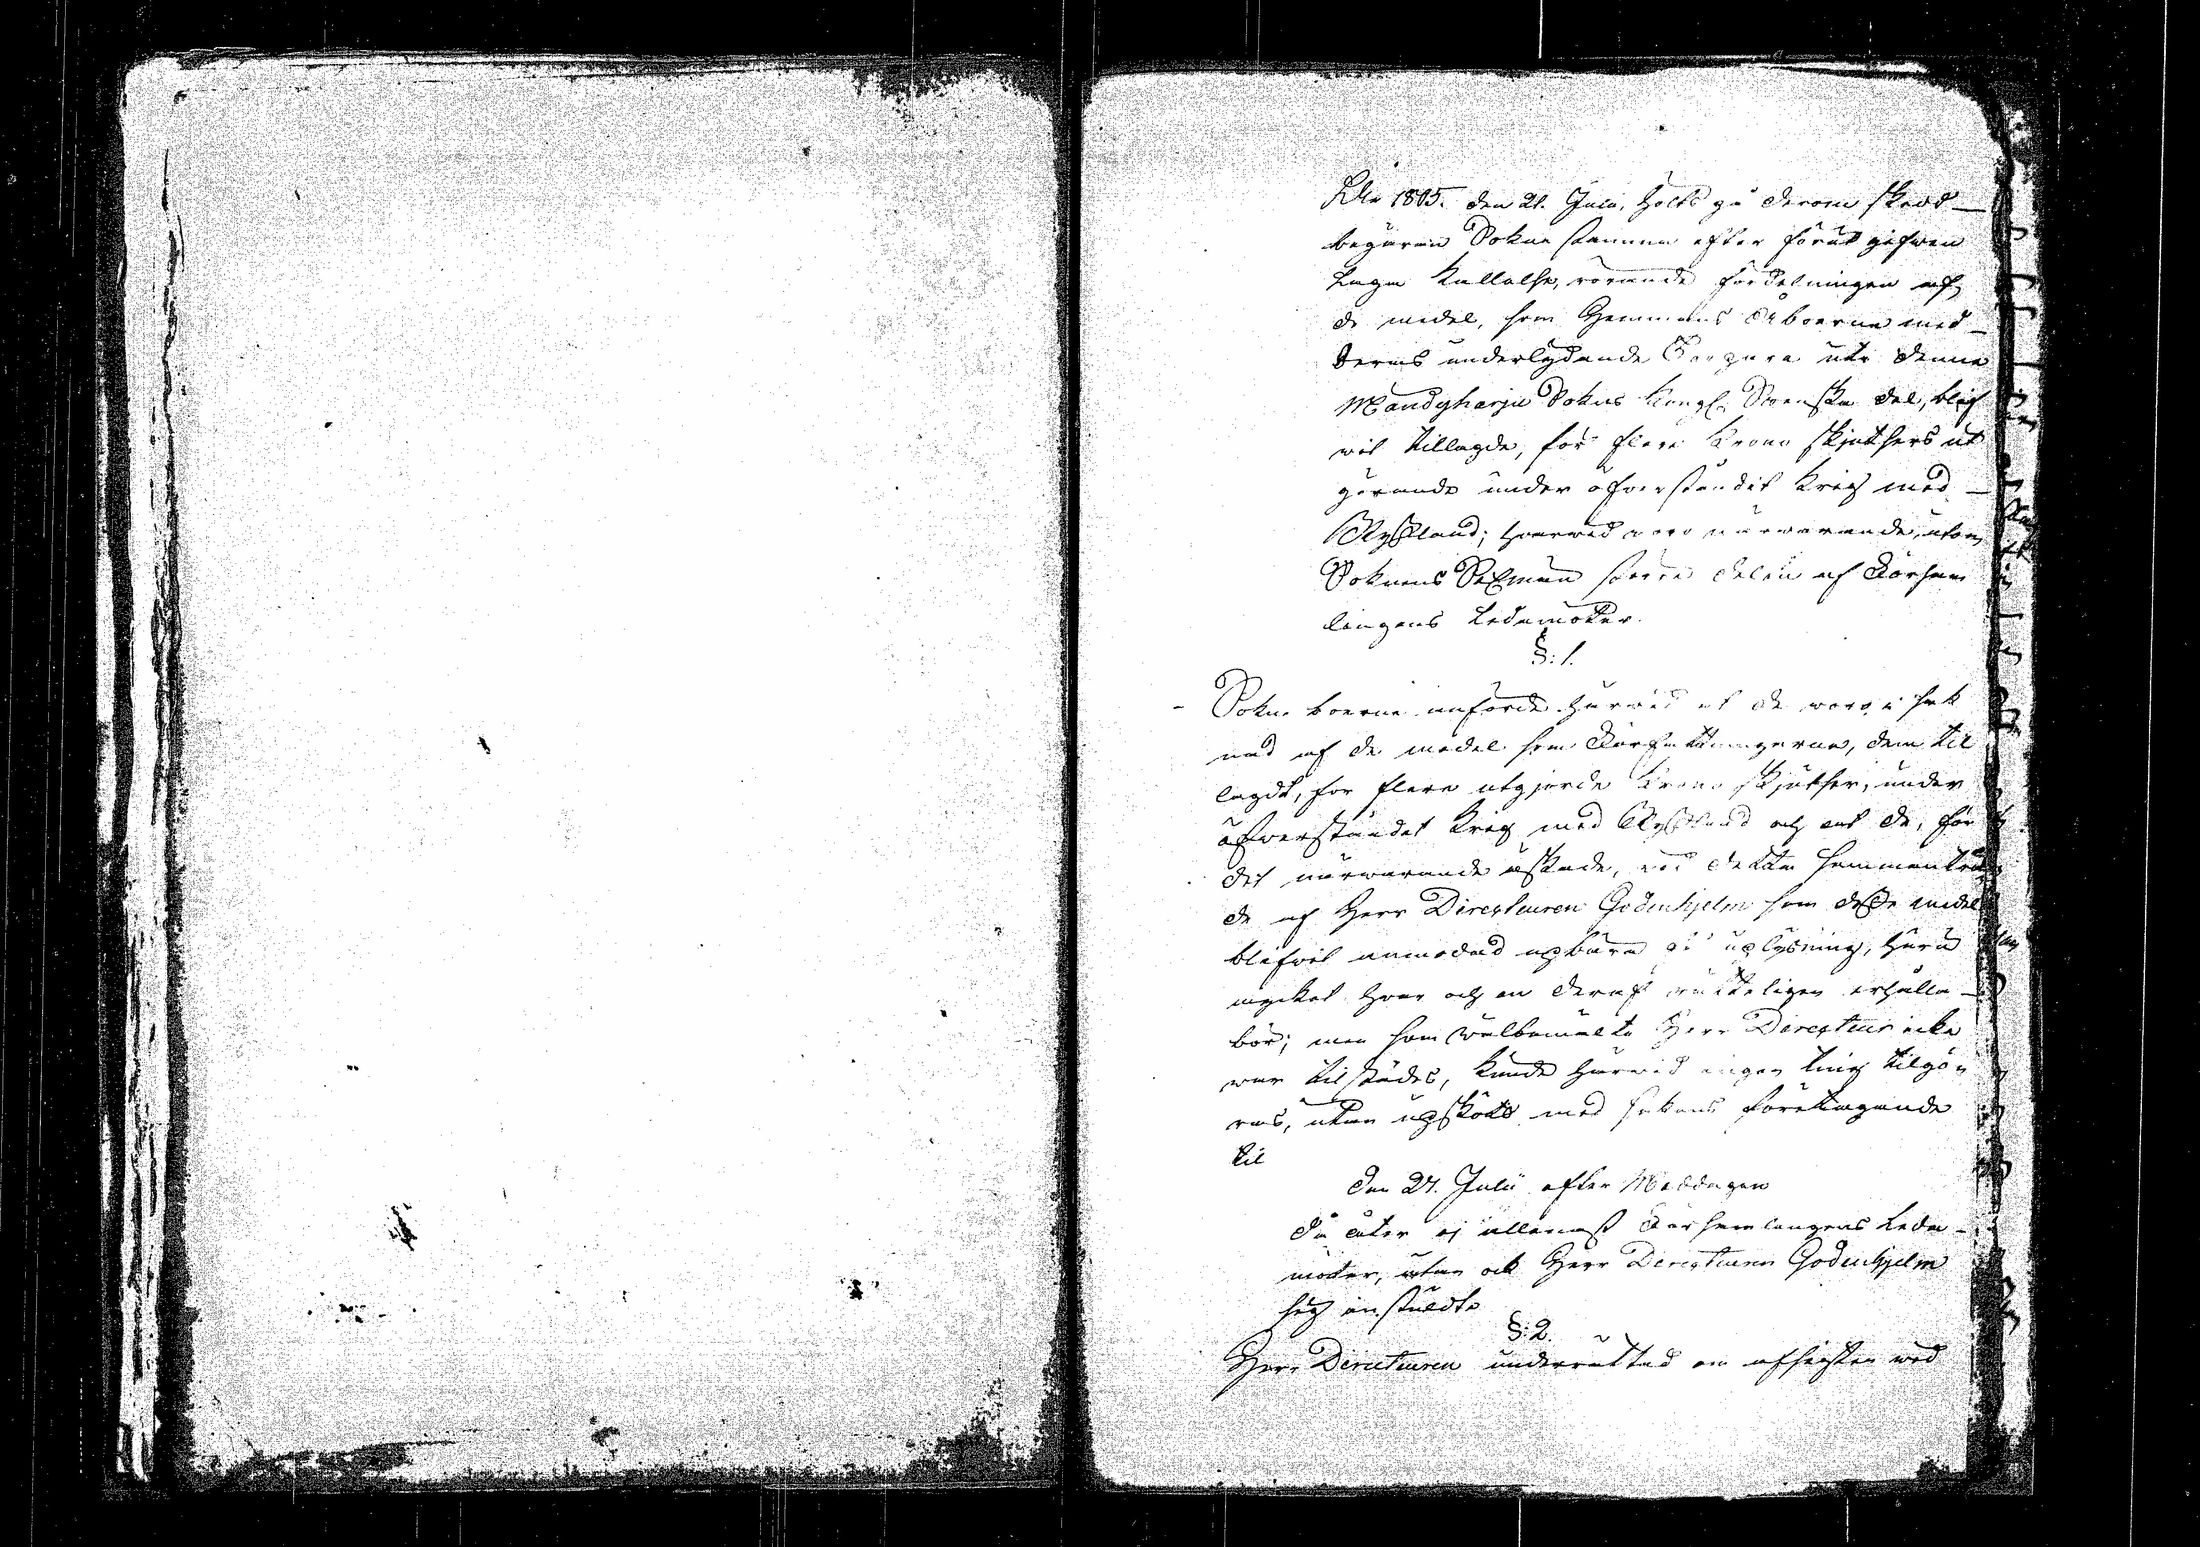 Åhr 1805. den 21. Julii, Holts på derom skedd
begäran Sokne stämma efter förut gifwen
Laga Kallelse, rörande fördelningen af
de medel, som Hemmans Åboerne med
deras underlydande Torpare utr denna
Mändyharju Sokns Kongl. Swenska del, blif
wit tillagde, för flere Krono skjutsers ut
görande under öfverståndit Krig med
Ryssland; hvarwid woro närwarande, utom
Soknens Sexmän större delen af Församl
lingens Ledamöter.
§: 1.
Sokne boerne anförde härwid at de woro i sak
nad af de medel som Författningarne, dem til
lagdt, för flere utgjorde Krono skjutser, under
öfverståndet Krig med Ryssland och at de, för
det närwarande åstade, wid detta sammanträ
de af Herr Directeuren Godenhjelm som desse medel
blifwit anmodad upbära få uplysning, huru
mycket hvar och en deraf rätteligen erhålla
bör; men som Wälbemälte Herr Directeur icke
war tilstädes, kunde härwid ingen ting tilgö
ras, utan upsköts med sakens företagande
til
den 27. Julii efter Middagen
då åter ej allenast Församlingens Leda
möter, utan ock Herr Directeuren Godenhjelm
sig instälte
§: 2.
Herr Directeuren underrättad om afsigten med